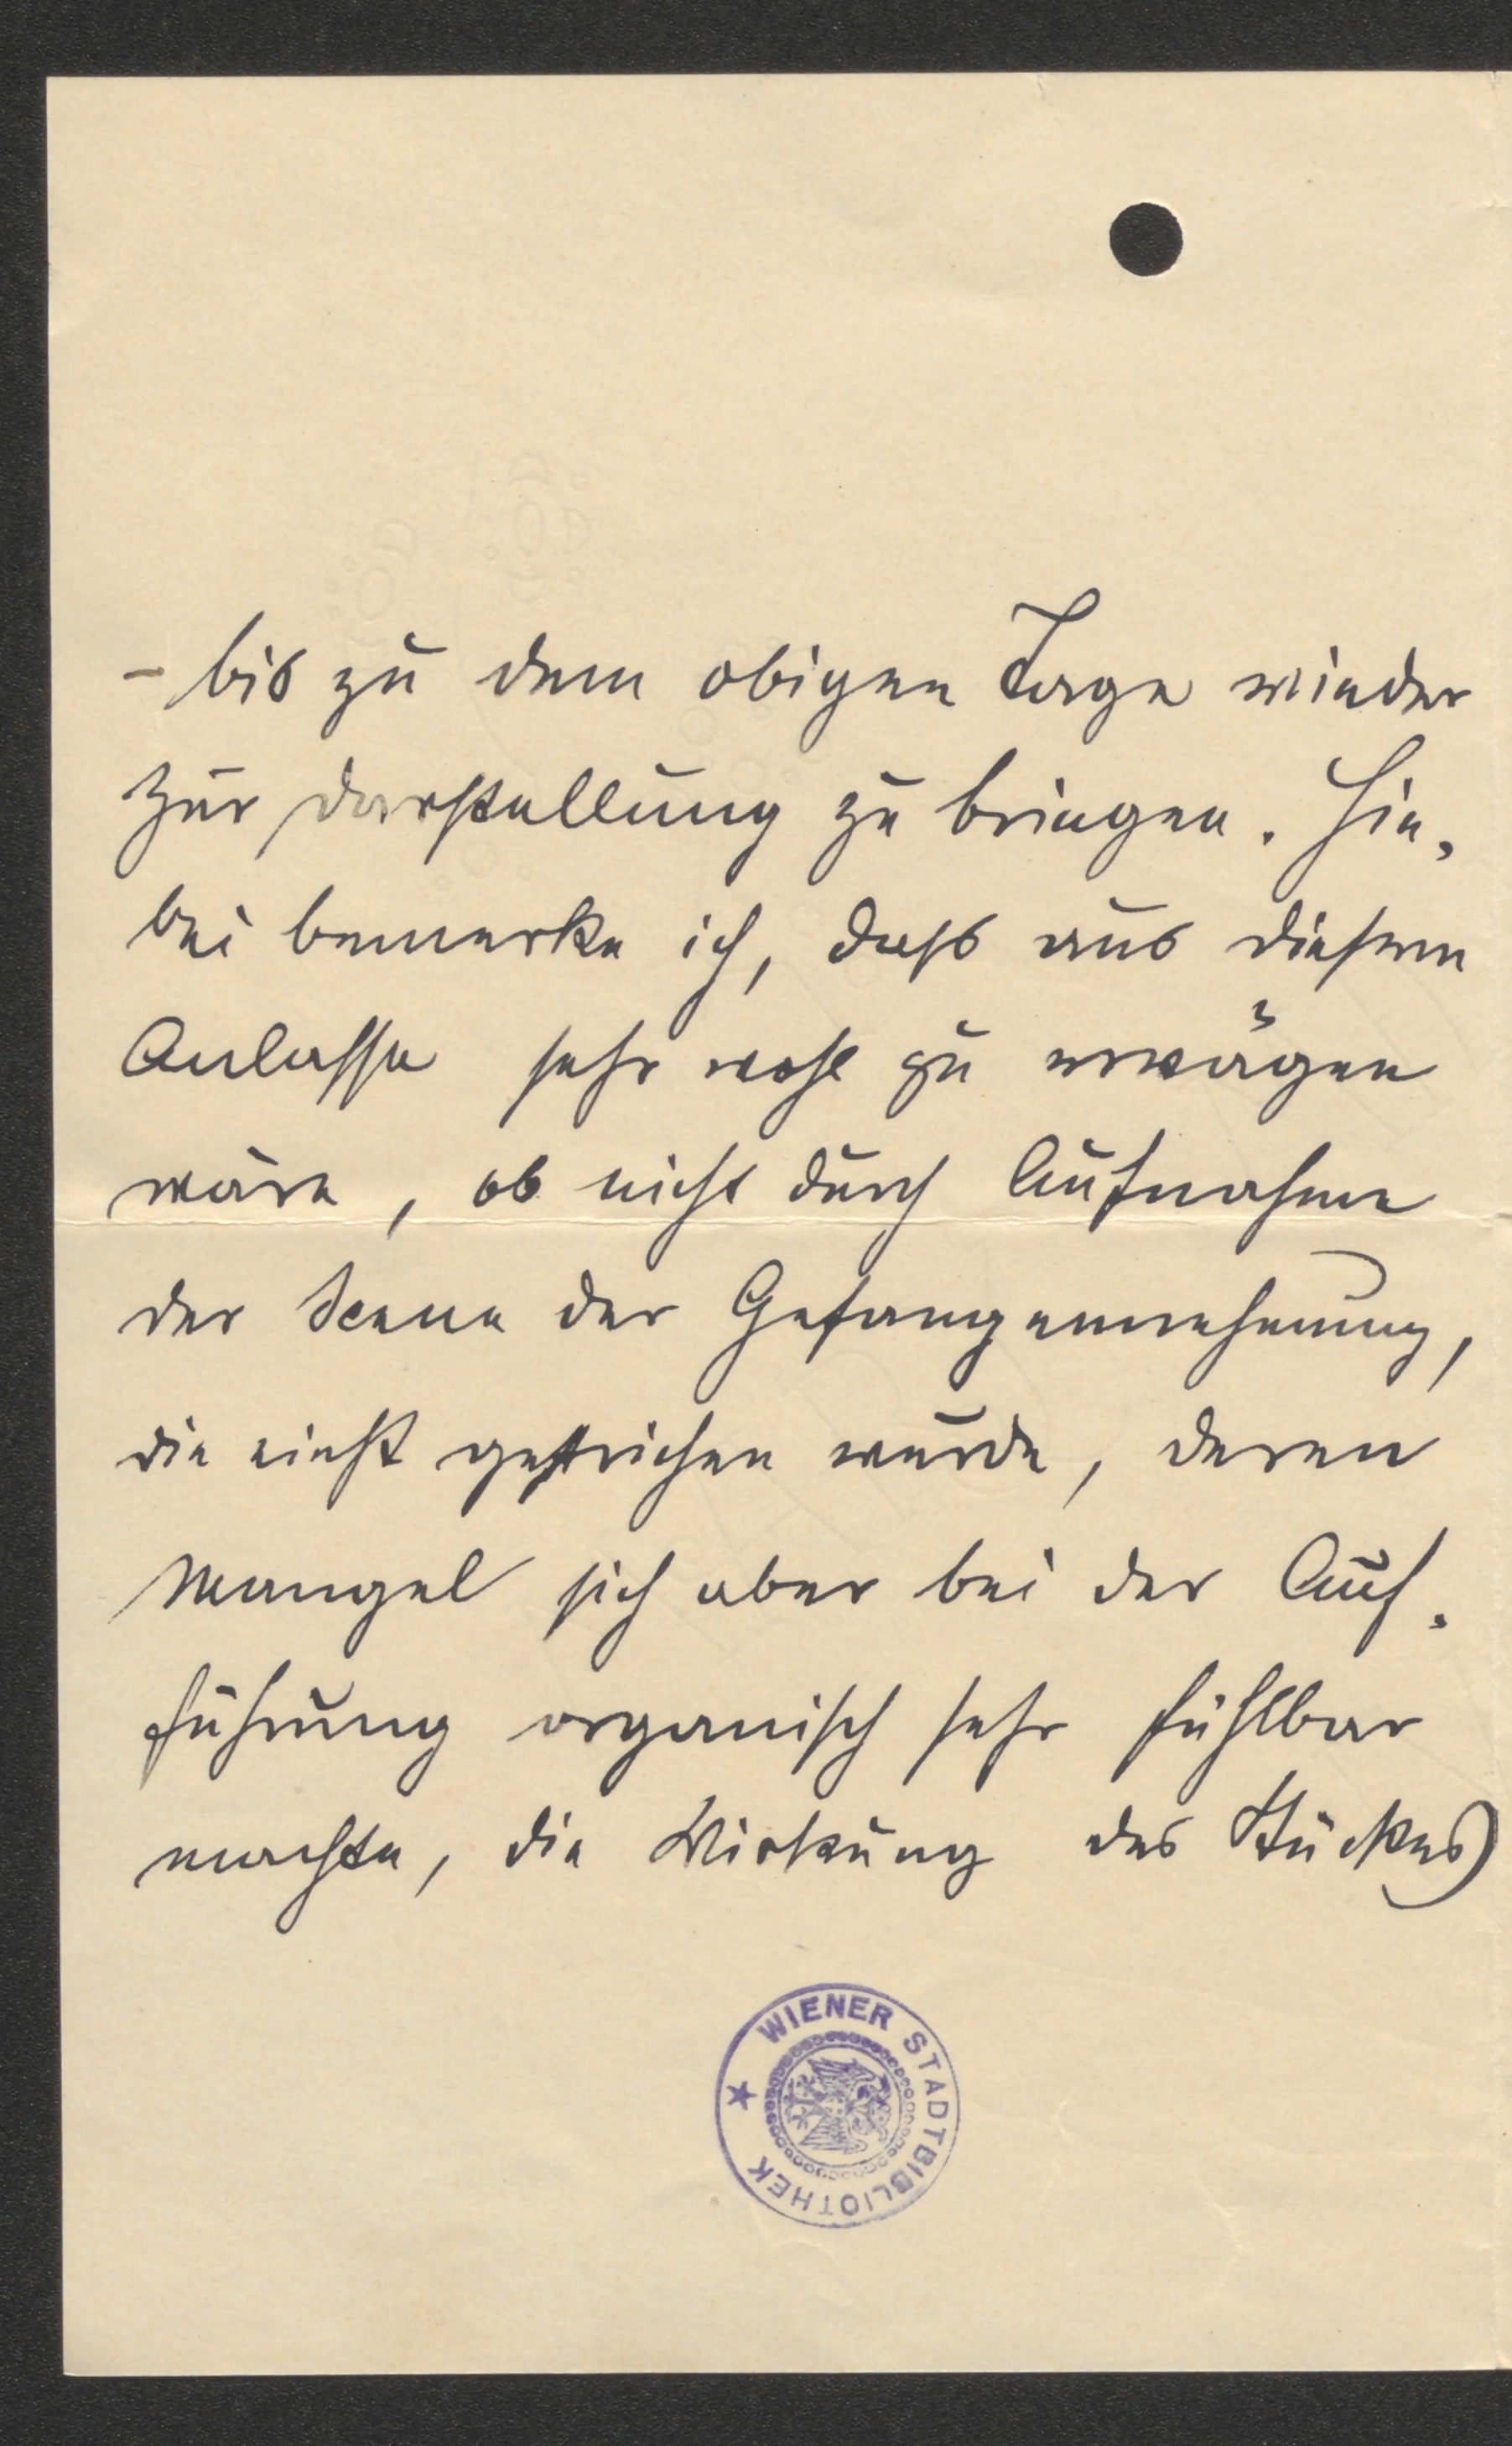 – bis zu dem obigen Tage wieder
zur Darstellung zu bringen. Hie-
bei bemerke ich, dass aus diesem
Anlasse sehr wohl zu erwägen
wäre, ob nicht durch Aufnahme
der Scene der Gefangennehmung,
die einst gestrichen wurde, deren
Mangel sich aber bei der Auf-
führung organisch sehr fühlbar
machte, die Wirkung des Stückes
WIENER STADTBIBLIOTHEK